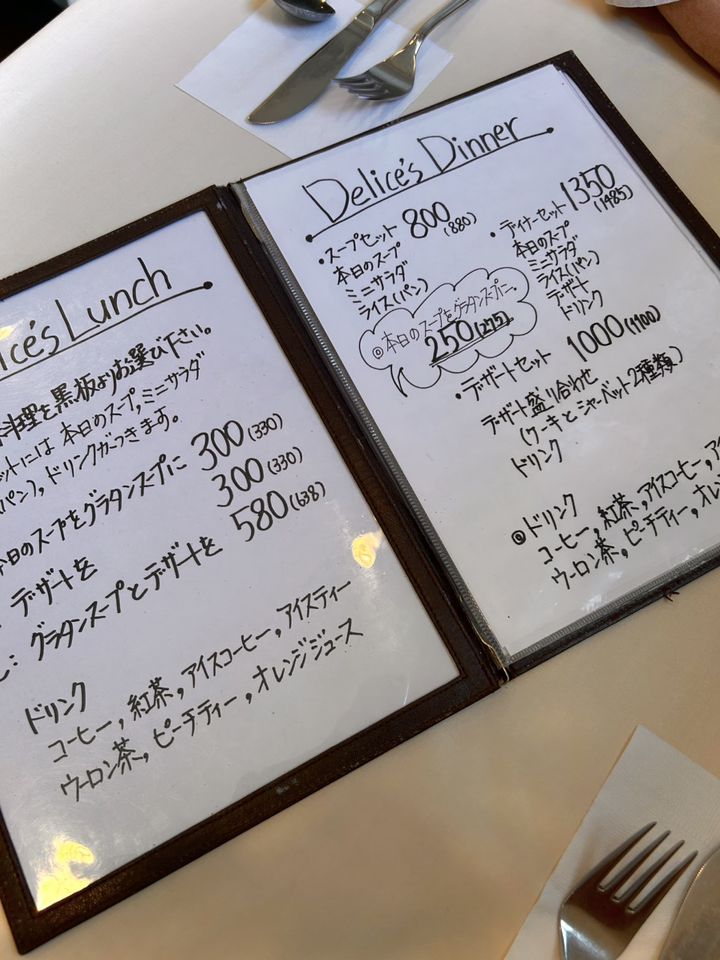 ice's Lunch
料理を黒板よりお選び下さい。
ットには 本日のスープ,ミニサラダ
パン), ドリンクがつきます。
本日のスープをグラタンスープに 300(330)
デザートを 300(330)
グラタンスープとデザートを 580(638)
ドリンク
コーヒー, 紅茶, アイスコーヒー, アイスティー
ウーロン茶, ピーチティー, オレンジジュース
Delice's Dinner
・スープセット 800(880)
本日のスープ
ミニサラダ
ライス(パン)
◎本日のスープをグラタンスープに、
250(275).
・ディナーセット 1350(1485)
本日のスープ
ミニサラダ
ライス(パン)
デザート
ドリンク
・デザートセット 1000(1100)
デザート盛り合わせ
(ケーキとシャーベット2種類)
ドリンク
◎ドリンク
コーヒー, 紅茶, アイスコーヒー, ア
ウーロン茶, ピーチティー, オレン